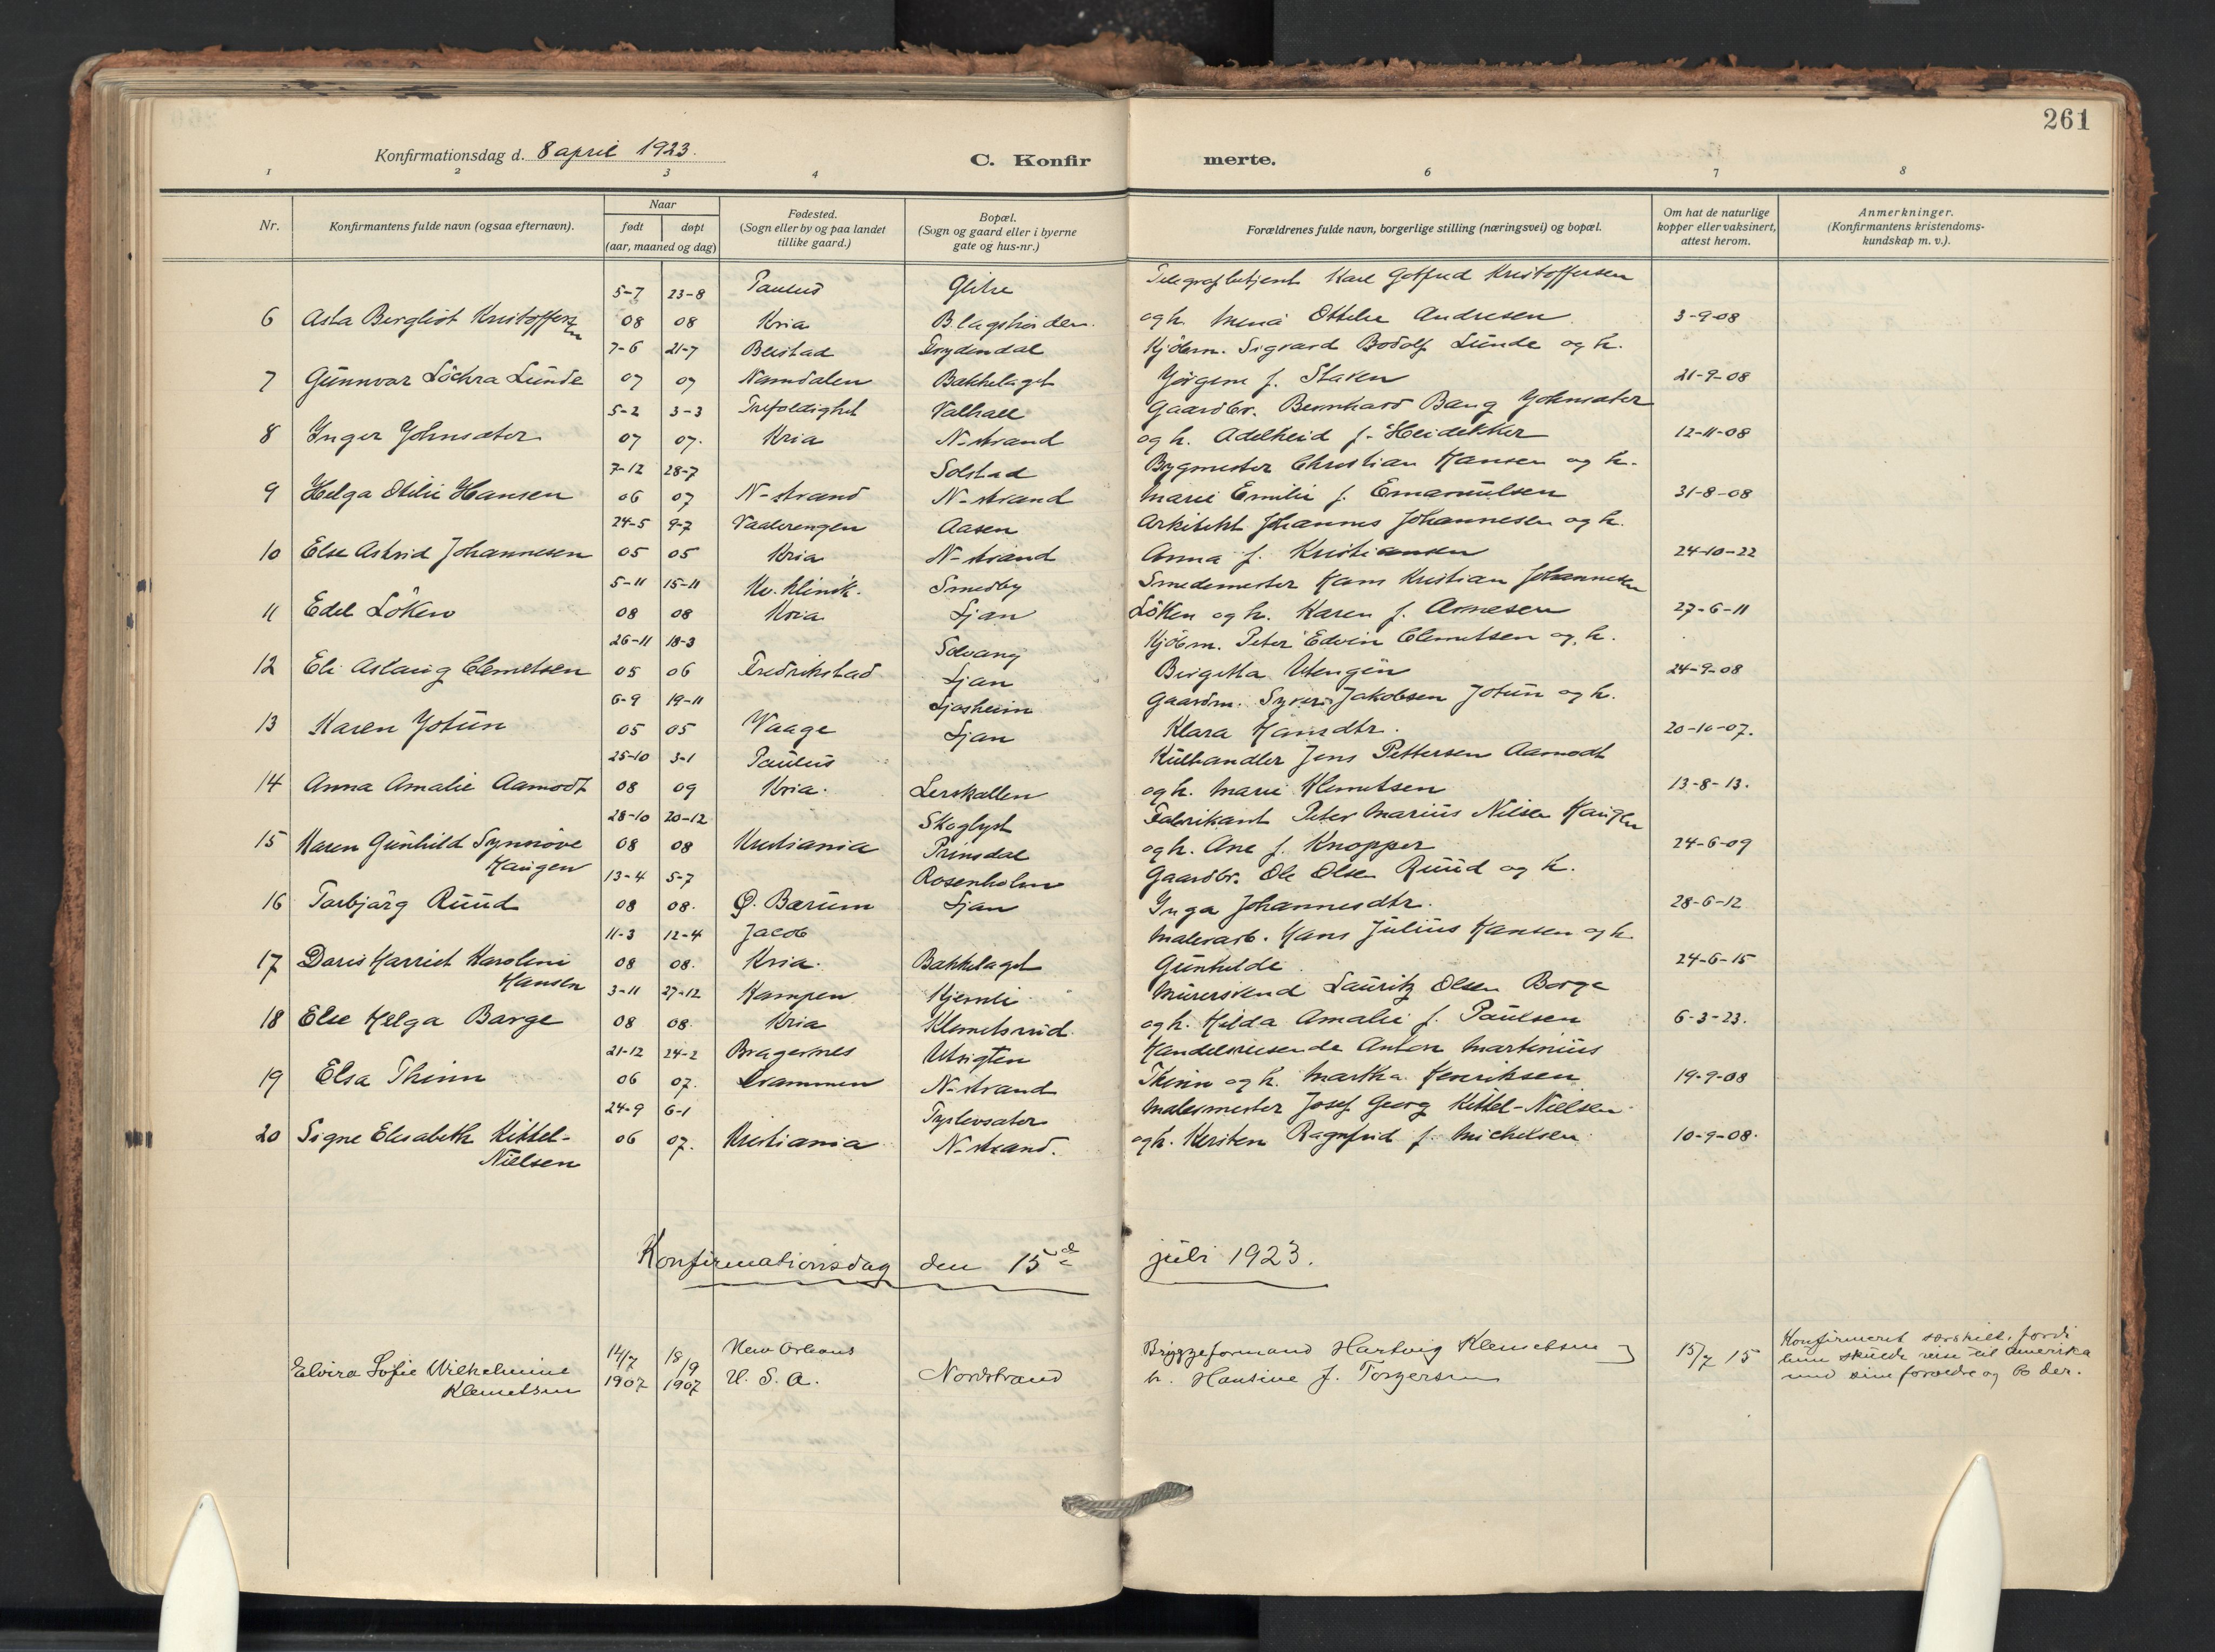 261
Konfirmationsdag d. 8 april 1923.
C. Konfirmerte.
1 2 3 4 6 7 8
Nr.
Konfirmantens fulde navn (ogsaa efternavn).
Naar
født døpt
(aar, maaned og dag)
Fødested.
(Sogn eller by og paa landet
tillike gaard.)
Bopæl.
(Sogn og gaard eller i byerne
gate og hus-nr.)
Forældrenes fulde navn, borgerlige stilling (næringsvei) og bopæl.
Om hat de naturlige
kopper eller vaksinert,
attest herom.
Anmerkninger.
(Konfirmantens kristendoms-
kundskap m. v.).
5-7 23-8 Paulus Glitre Telegrafbetjent Karl Gotfred Kristoffersen
6 Asta Bergliot Kristoffersen 08 08 Kria B.lagshöiden. og h. Mena Ottilie Andresen 3-9-08
7-6 21-7 Beistad Frydendal Kjöbm. Sigvard Bodolf Lunde og h.
7 Gunnvor Löchra Lunde 07 07 Namdalen Bakkelaget Jörgine f. Staven 21-9-08
5-2 3-3 Trefoldighet Valhall Gaardbr. Bernhard Bang Johnsæter
8 Inger Johnsæter 07 07. Kria N-strand og h. Adelheid f. Heidekker 12-11-08
7-12 28-7 Solstad Bygmester Christian Hansen og h.
9 Helga Otilie Hansen 06 07 N-strand N-strand Marie Emilie f. Emanuelsen 31-8-08
24-5 9-7 Vaalerengen Aasen Arkitekt Johannes Johannesen og h.
10 Else Astrid Johannesen 05 05 Kria N-strand Anna f. Kristiansen 24-10-22
5-11 15-11 Kv. klinik. Smedby Smedemester Hans Kristian Johannesen
11 Edel Löken 08 08 Kria Ljan Löken og h. Karen f. Arnesen 27-6-11
26-11 18-3 Solvang Kjöbm. Peter Edvin Clemetsen og h.
12 Eli Aslaug Clemetsen 05 06 Fredrikstad Ljan Birgitta Utengen 24-9-08
6-9 19-11 Ljosheim Gaardm. Syver Jakobsen Jotun og h.
13 Karen Jotun 05 05 Vaage Ljan Klara Hansdtr. 20-10-07.
25-10 3-1 Paulus Kulhandler Jens Pettersen Aamodt
14 Anna Amalie Aamodt 08 09 Kria. Lerskallen og h. Marie Klemetsen 13-8-13.
28-10 20-12 Skoglyst Fabrikant Peter Marius Nilsen Haugen
15 Karen Gunhild Synnöve 08 08 Kristiania Prinsdal og h. Ane f. Knopper 24-6-09
Haugen 13-4 5-7 Rosenholm Gaardbr. Ole Olsen Ruud og h.
16 Torbjörg Ruud 08 08. Ø. Bærum Ljan Inga Johannesdtr. 28-6-12
11-3 12-4 Jacob Malerarb. Hans Julius Hansen og h
17 Doris Harriet Karoline 08 08. Kria. Bakkelaget Gunhilde 24-6-15
Hansen 3-11 27-12 Kampen Hjemli Murersvend Lauritz Olsen Borge
18 Else Helga Borge 08 08. Kria Klemetsrud. og h. Hilda Amalie f. Paulsen 6-3-23.
21-12 24-2 Bragernes Utsigten Handelsreisende Anton Martinius
19 Elsa Thinn 06 07. Drammen N-strand Thinn og h. Martha Henriksen 19-9-08
24-9 6-1 Tyslevsæter Malermester Josef Georg Kittel-Nielsen
20 Signe Elisabeth Kittel- 06 07. Kristiania N-strand. og h. Kirsten Ragnfrid f. Michelsen 10-9-08.
Nielsen
Konfirmationsdag den 15de juli 1923.
14/7 18/9 New Orleans Bryggeformand Hartvig Klemetsen 15/7 15 Konfirmeret særskilt, fordi
Elvira Sofie Wilhelmine 1907 1907 U. S. A. Nordstrand h. Hansine f. Torgersen hun skulde reise til Amerika
Klemetsen med sine forældre og bo der.